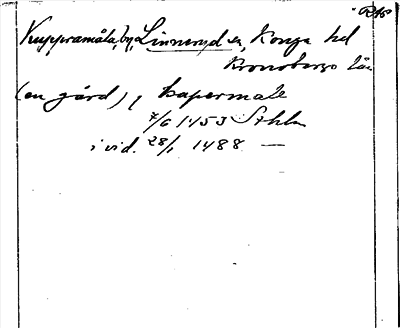 RAp
Kuppramåla, by, Linneryd sn, Konga hd
Kronobergs län
(en gård), kapermale
7/6 1453 Sthlm
i vid. 28/1 1488 —